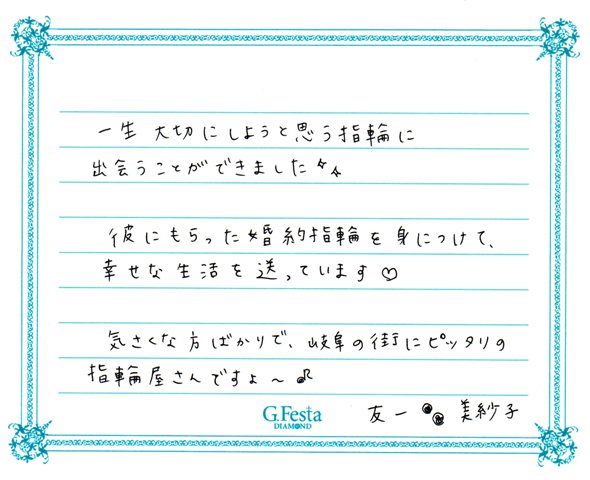 一生大切にしようと思う指輪に
出会うことができました
彼にもらった婚約指輪を身につけて、
幸せな生活を送っています♡
気さくな方ばかりで、岐阜の街にピッタリの
指輪屋さんですよ～♪
G.Festa
DIAMOND
友一 美紗子